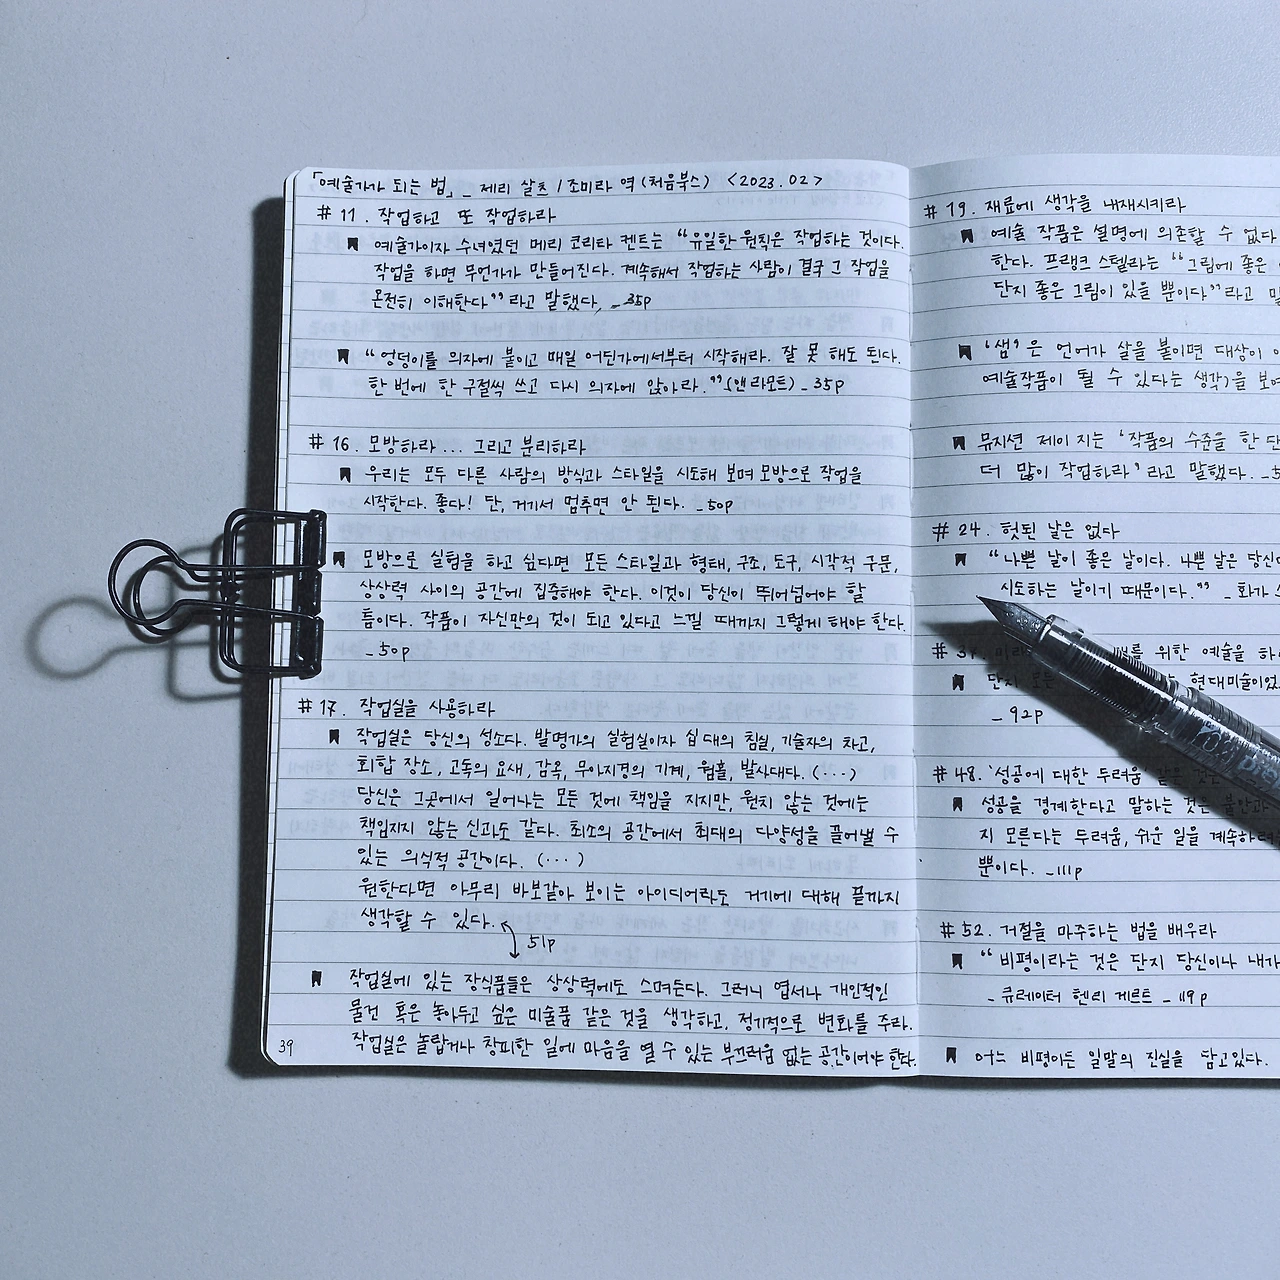 「예술가가 되는 법」_ 제리 살츠 / 조미라 역 (처음북스) <2023.02>
# 11. 작업하고 또 작업하라
예술가이자 수녀였던 메리 코리타 켄트는 “유일한 원칙은 작업하는 것이다.
작업을 하면 무언가가 만들어진다. 계속해서 작업하는 사람이 결국 그 작업을
온전히 이해한다”라고 말했다. _35p
“엉덩이를 의자에 붙이고 매일 어딘가에서부터 시작해라. 잘 못 해도 된다.
한 번에 한 구절씩 쓰고 다시 의자에 앉아라.”(앤 라모트) _35p
# 16. 모방하라... 그리고 분리하라
우리는 모두 다른 사람의 방식과 스타일을 시도해 보며 모방으로 작업을
시작한다. 좋다! 단, 거기서 멈추면 안 된다. _50p
모방으로 실험을 하고 싶다면 모든 스타일과 형태, 구조, 도구, 시각적 구문,
상상력 사이의 공간에 집중해야 한다. 이것이 당신이 뛰어넘어야 할
틈이다. 작품이 자신만의 것이 되고 있다고 느낄 때까지 그렇게 해야 한다.
_50p
# 17. 작업실을 사용하라
작업실은 당신의 성소다. 발명가의 실험실이자 십 대의 침실, 기술자의 차고,
회합 장소, 고독의 요새, 감옥, 무아지경의 기계, 웜홀, 발사대다. (...)
당신은 그곳에서 일어나는 모든 것에 책임을 지지만, 원치 않는 것에는
책임지지 않는 신과도 같다. 최소의 공간에서 최대의 다양성을 끌어낼 수
있는 의식적 공간이다. (...)
원한다면 아무리 바보같아 보이는 아이디어라도 거기에 대해 끝까지
생각할 수 있다.
51p
작업실에 있는 장식품들은 상상력에도 스며든다. 그러니 엽서나 개인적인
물건 혹은 놓아두고 싶은 미술품 같은 것을 생각하고, 정기적으로 변화를 주라.
작업실은 놀랍거나 창피한 일에 마음을 열 수 있는 부끄러움 없는 공간이어야 한다.
39
# 19. 재료에 생각을 내재시키라
예술 작품은 설명에 의존할 수 없다
한다. 프랭크 스텔라는 “그림에 좋은
단지 좋은 그림이 있을 뿐이다”라고
‘샘’은 언어가 살을 붙이면 대상이
예술작품이 될 수 있다는 생각)을
뮤지션 제이 지는 ‘작품의 수준을 한
더 많이 작업하라’라고 말했다.
# 24. 헛된 날은 없다
“나쁜 날이 좋은 날이다. 나쁜 날은
시도하는 날이기 때문이다.” _ 화가
위한 예술을
단지 모든 현대미술이었
_92p
# 48. ‘성공에 대한 두려움’ 같은
성공을 경계한다고 말하는 것은 불안과
지 모른다는 두려움, 쉬운 일을 계속하려
뿐이다. _111p
# 52. 거절을 마주하는 법을 배우라
“비평이라는 것은 단지 당신이나 내가
_ 큐레이터 헨리 게르트 _119p
어느 비평이든 일말의 진실을 담고있다.